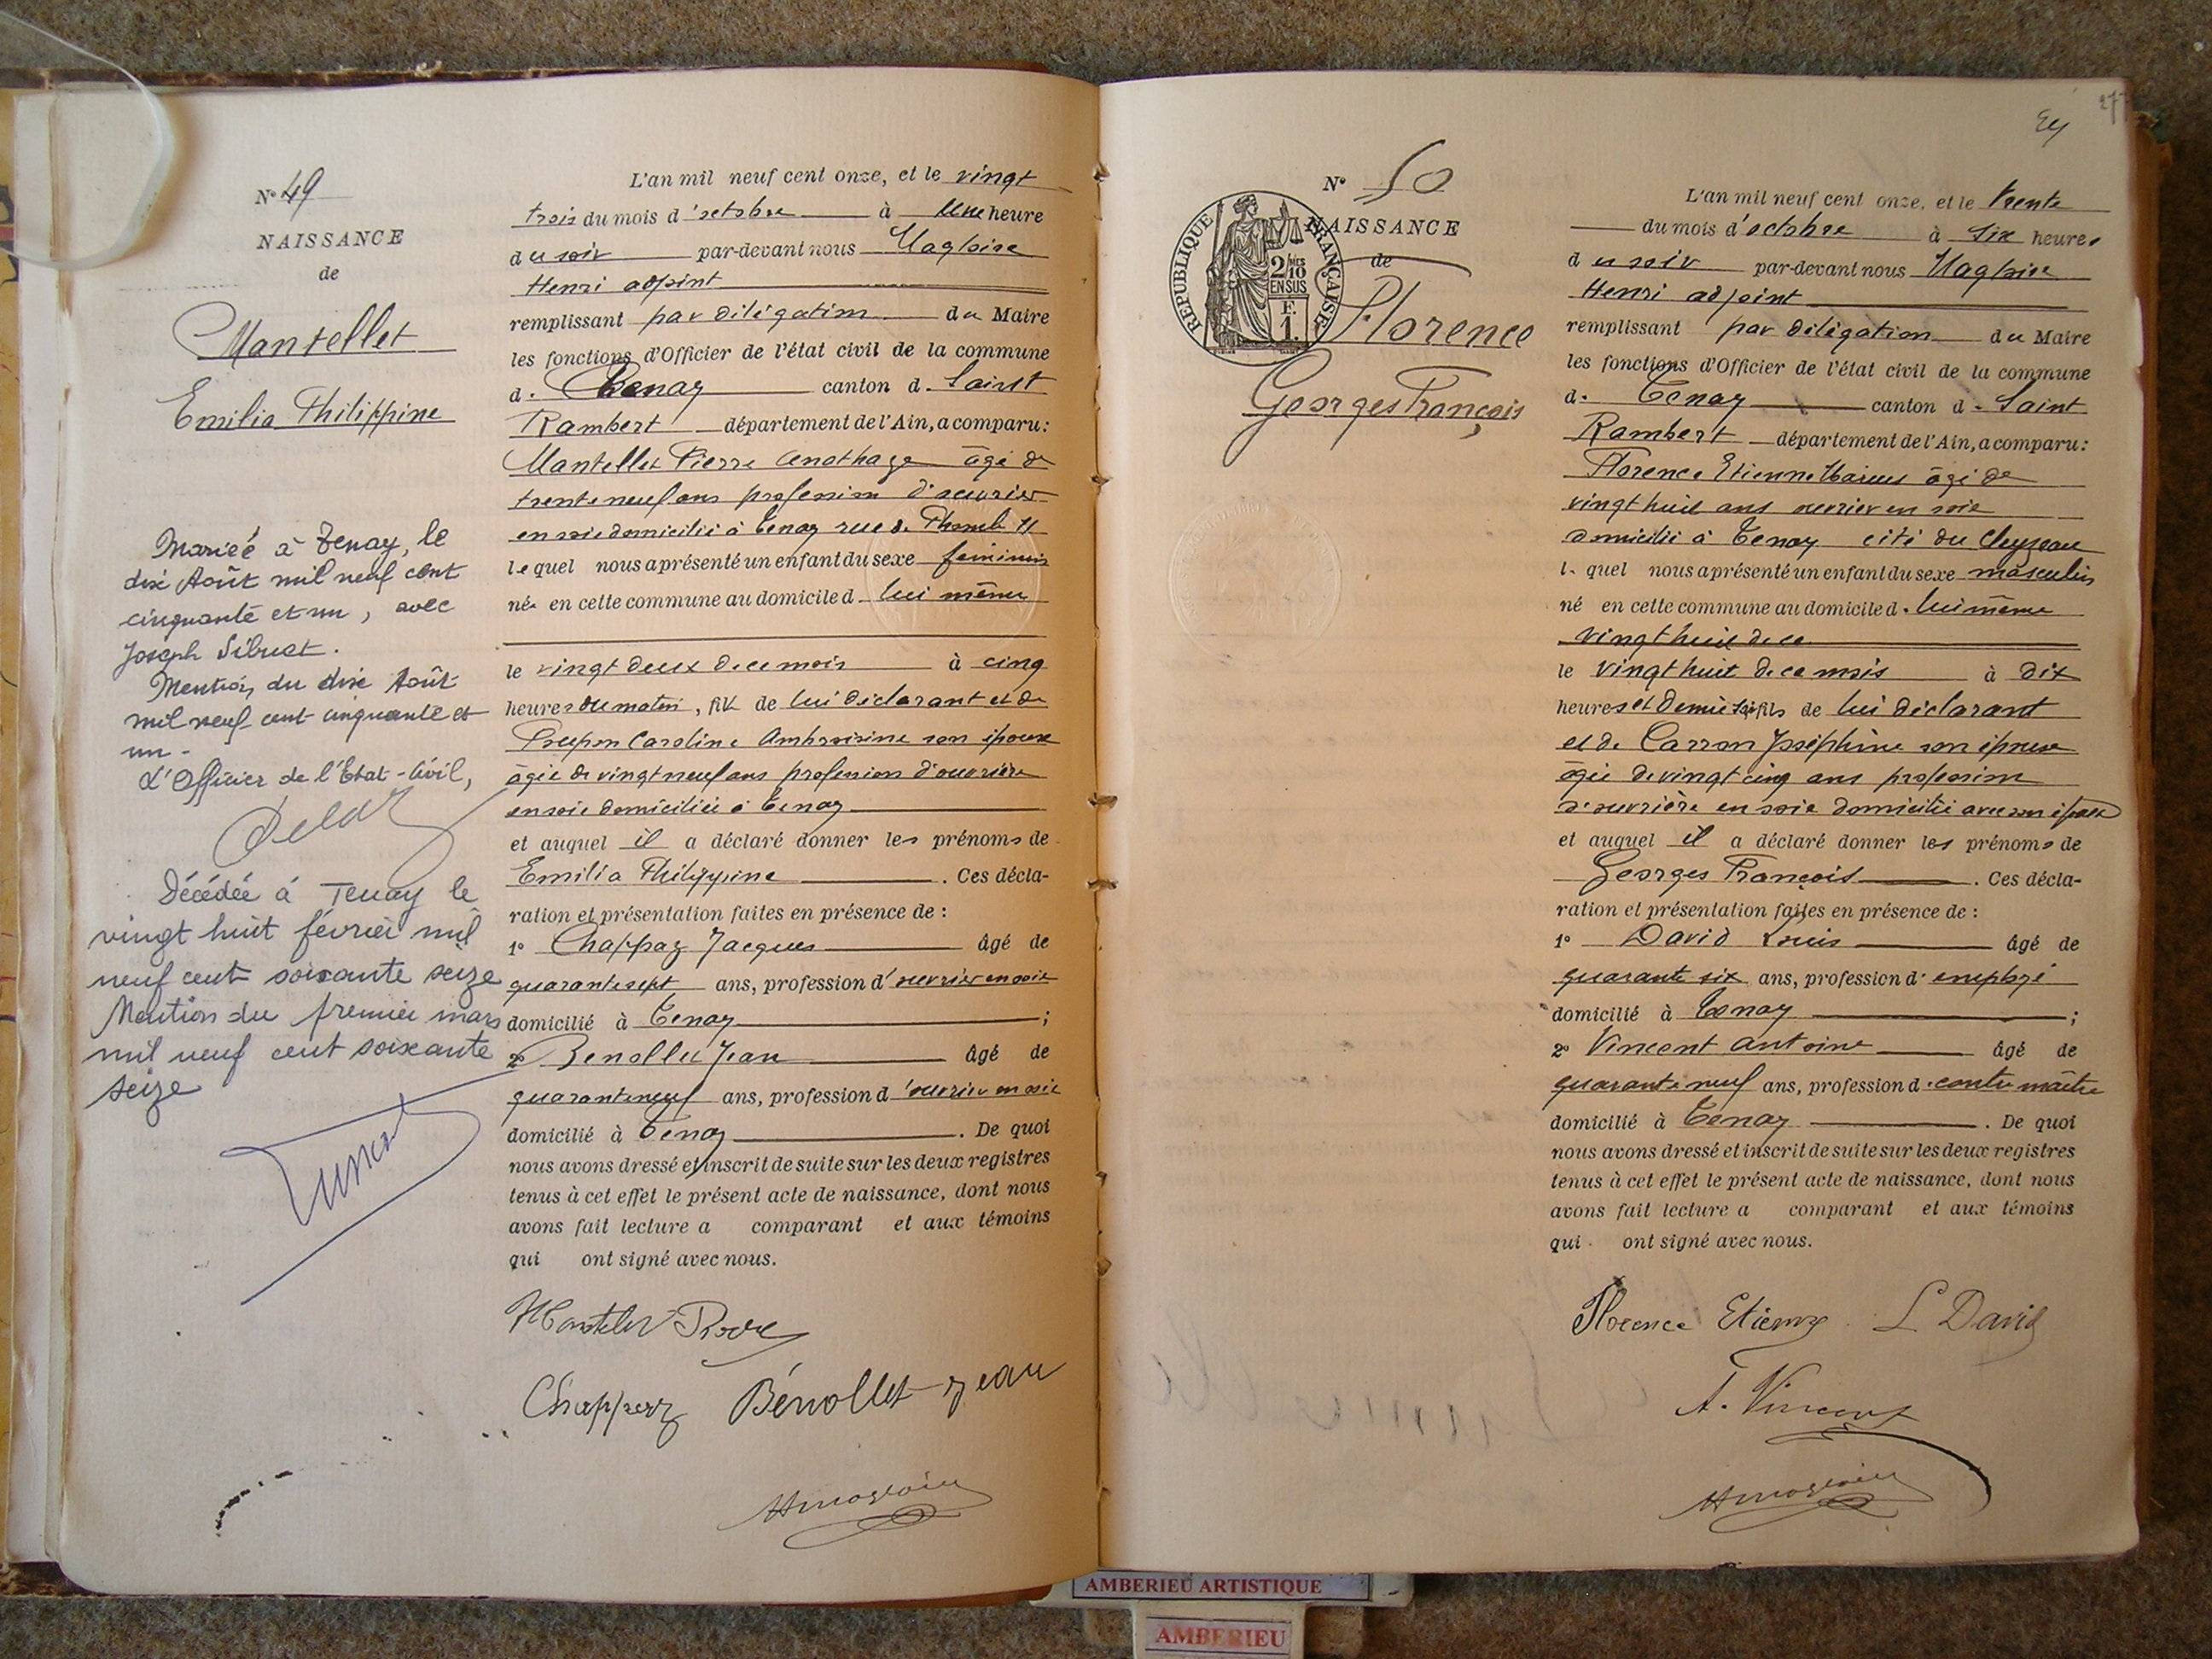 N° 49
NAISSANCE
de
Mantellet
Emilia Philippine
Mariée à Tenay, le
dix Août mil neuf cent
cinquante et un, avec
Joseph Sibuet.
Mention du dix Août
mil neuf cent cinquante et
un.
L'Officier de l'Etat-Civil,
Décédée à Tenay le
vingt huit février mil
neuf cent soixante seize
Mention du premier mars
mil neuf cent soixante
seize
L'an mil neuf cent onze, et le vingt
trois du mois d'octobre à Une heure
du soir par-devant nous Magloire
Henri adjoint
remplissant par délégation du Maire
les fonctions d'Officier de l'état civil de la commune
de Tenay canton de Saint
Rambert département de l'Ain, a comparu:
Mantellet Pierre âgé de
trente neuf ans profession d'ouvrier
en soie domicilié à Tenay rue de 11
lequel nous a présenté un enfant du sexe féminin
née en cette commune au domicile de lui même
le vingt deux de ce mois à cinq
heures du matin, fille de lui déclarant et de
Poupon Caroline Ambroisine son épouse
âgée de vingt neuf ans profession d'ouvrière
en soie domiciliée à Tenay
et auquel il a déclaré donner les prénoms de
Emilia Philippine. Ces décla-
ration et présentation faites en présence de :
1° Chappaz Jacques âgé de
quarante sept ans, profession d'ouvrier en soie
domicilié à Tenay;
2° Benollet Jean âgé de
quarante neuf ans, profession d'ouvrier en soie
domicilié à Tenay. De quoi
nous avons dressé et inscrit de suite sur les deux registres
tenus à cet effet le présent acte de naissance, dont nous
avons fait lecture a comparant et aux témoins
qui ont signé avec nous.
Chappaz Bénollet Jean
27
N° 50
NAISSANCE
de
REPUBLIQUE FRANÇAISE
2/10 MES
EN SUS
F.
1.
Florence
Georges François
L'an mil neuf cent onze, et le trente
du mois d'octobre à Six heures
du soir par-devant nous Magloire
Henri adjoint
remplissant par délégation du Maire
les fonctions d'Officier de l'état civil de la commune
de Tenay canton de Saint
Rambert département de l'Ain, a comparu:
Florence Etienne Marius âgé de
vingt huit ans ouvrier en soie
domicilié à Tenay cité du Cleyzeau
lequel nous a présenté un enfant du sexe masculin
né en cette commune au domicile de lui même
vingt huit de ce
le vingt huit de ce mois à dix
heures et demie fils de lui déclarant
et de Carron Joséphine son épouse
âgée de vingt cinq ans profession
d'ouvrière en soie domiciliée avec son époux
et auquel il a déclaré donner les prénoms de
Georges François. Ces décla-
ration et présentation faites en présence de :
1° David Louis âgé de
quarante six ans, profession d'employé
domicilié à Tenay;
2° Vincent Antoine âgé de
quarante neuf ans, profession de contre maître
domicilié à Tenay. De quoi
nous avons dressé et inscrit de suite sur les deux registres
tenus à cet effet le présent acte de naissance, dont nous
avons fait lecture a comparant et aux témoins
qui ont signé avec nous.
Florence Etienne L David
A. Vincent
AMBERIEU ARTISTIQUE
AMBERIEU